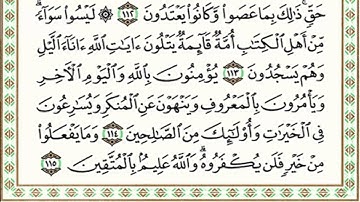 حَقٍّ ذَٰلِكَ بِمَا عَصَوا۟ وَّكَانُوا۟ يَعْتَدُونَ ١١٢ ۞ لَيْسُوا۟ سَوَآءً ۗ
مِنْ أَهْلِ ٱلْكِتَٰبِ أُمَّةٌ قَآئِمَةٌ يَتْلُونَ ءَايَٰتِ ٱللَّهِ ءَانَآءَ ٱلَّيْلِ
وَهُمْ يَسْجُدُونَ ١١٣ يُؤْمِنُونَ بِٱللَّهِ وَٱلْيَوْمِ ٱلْءَاخِرِ
وَيَأْمُرُونَ بِٱلْمَعْرُوفِ وَيَنْهَوْنَ عَنِ ٱلْمُنكَرِ وَيُسَٰرِعُونَ
فِى ٱلْخَيْرَٰتِ وَأُو۟لَٰٓئِكَ مِنَ ٱلصَّٰلِحِينَ ١١٤ وَمَا يَفْعَلُوا۟
مِنْ خَيْرٍ فَلَن يُكْفَرُوهُ ۗ وَٱللَّهُ عَلِيمٌۢ بِٱلْمُتَّقِينَ ١١٥